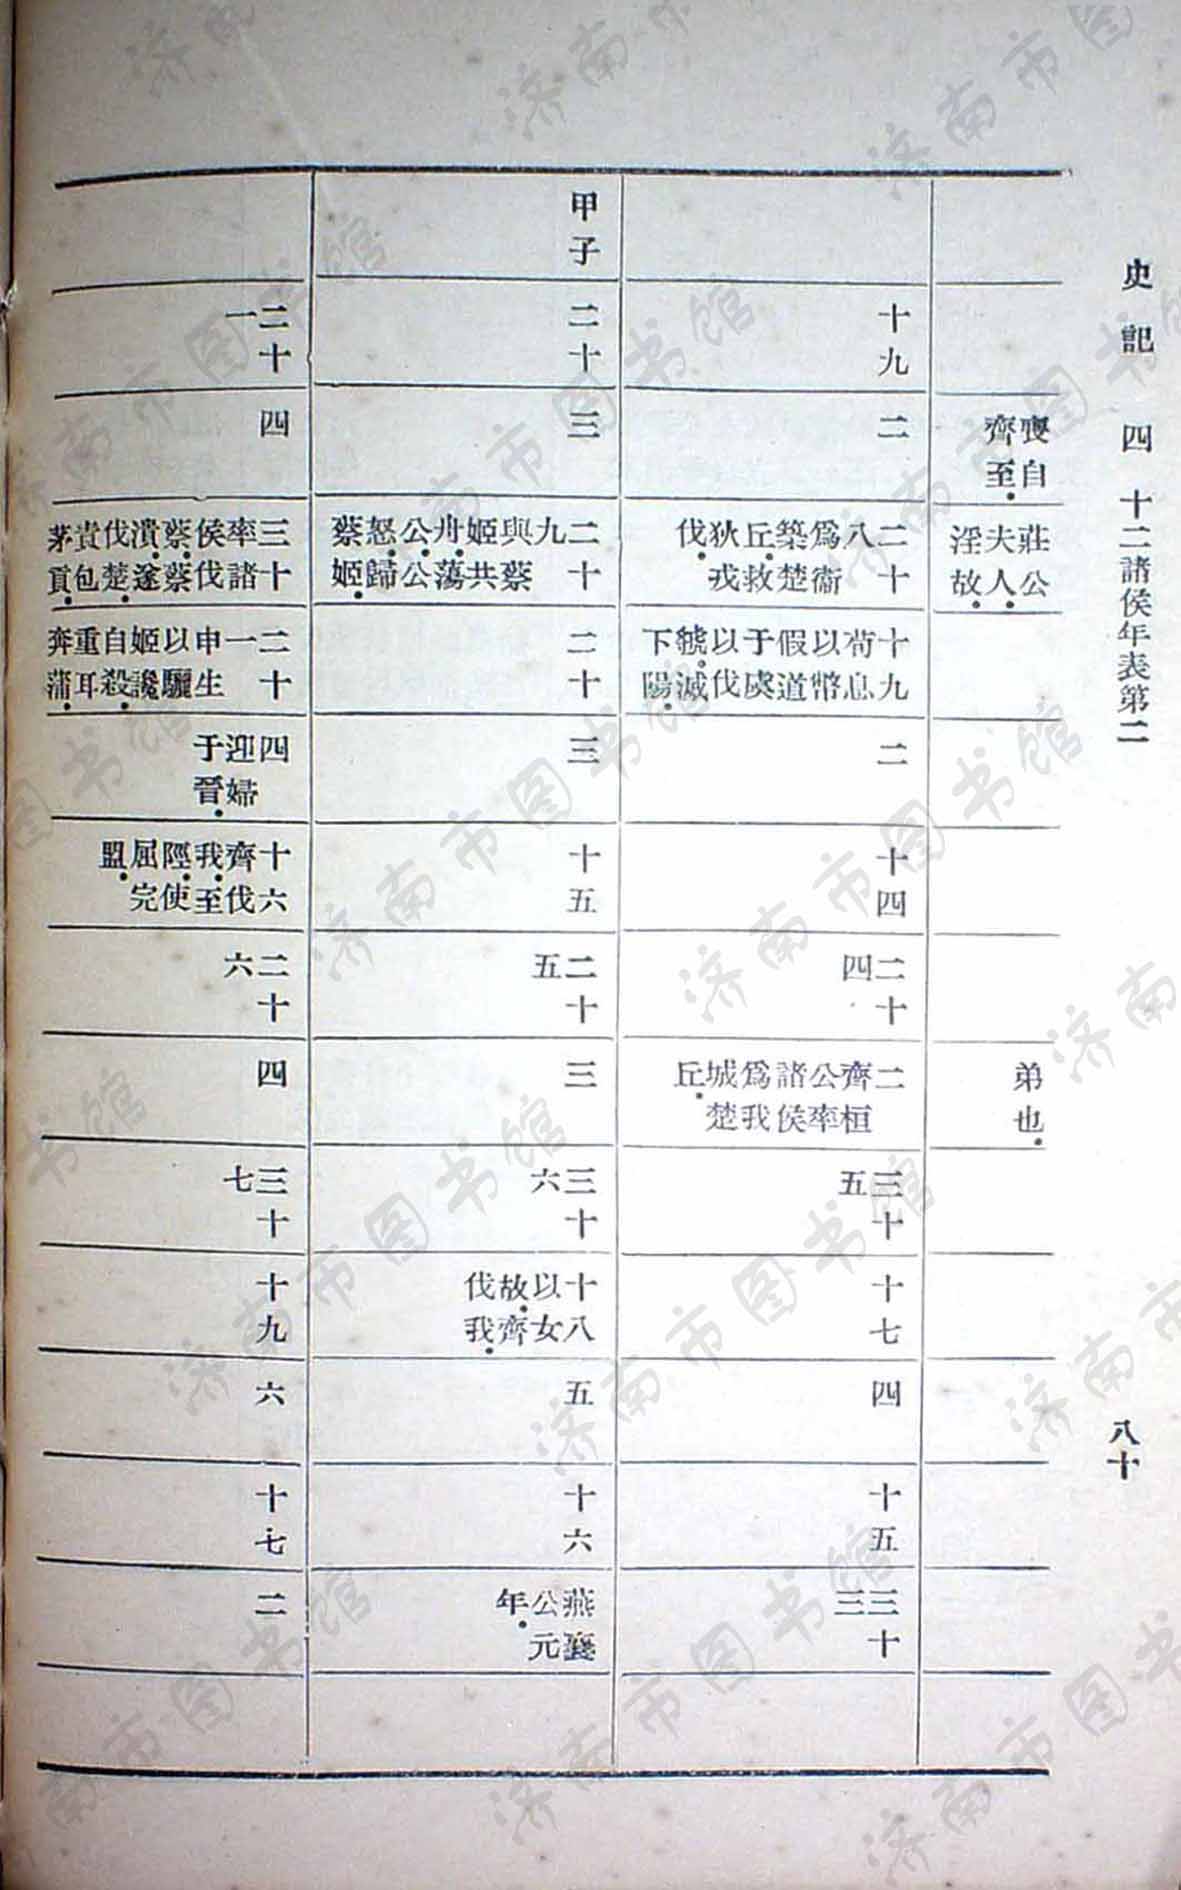 史記 四 十二諸侯年表第二
八十
喪自齊至
莊公夫人淫故
弟也
十九
二
二十八爲衞築楚丘救狄戎伐
十九荀息以幣假道于虞以伐虢滅下陽
二
十四
二十四
二齊桓公率諸侯爲我城楚丘
三十五
十七
四
十五
三十三
甲子
二十
三
二十九與蔡姬共舟蕩公公怒歸蔡姬
二十
三
十五
二十五
三
三十六
十八以女故齊伐我
五
十六
燕襄公元年
二十一
四
三十率諸侯伐蔡蔡潰遂伐楚貴包茅貢
二十一申生以驪姬讒自殺重耳奔蒲
四迎婦于晉
十六齊伐我至陘使屈完盟
二十六
四
三十七
十九
六
十七
二
济南市图书馆